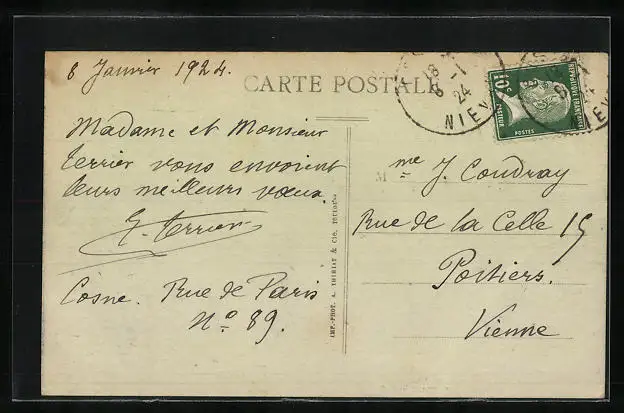 8 Janvier 1924.
CARTE POSTALE
18
8 -1
24
NIEV
10c
POSTES
Madame et Monsieur
Terrier vous envoient
leurs meilleurs vœux.
Terrier
Cosne. Rue de Paris
No 89.
IMP.-PHOT. A. THIRIAT & Cie, TOULOUSE
Mme J. Coudray
Rue de la Celle 15
Poitiers.
Vienne